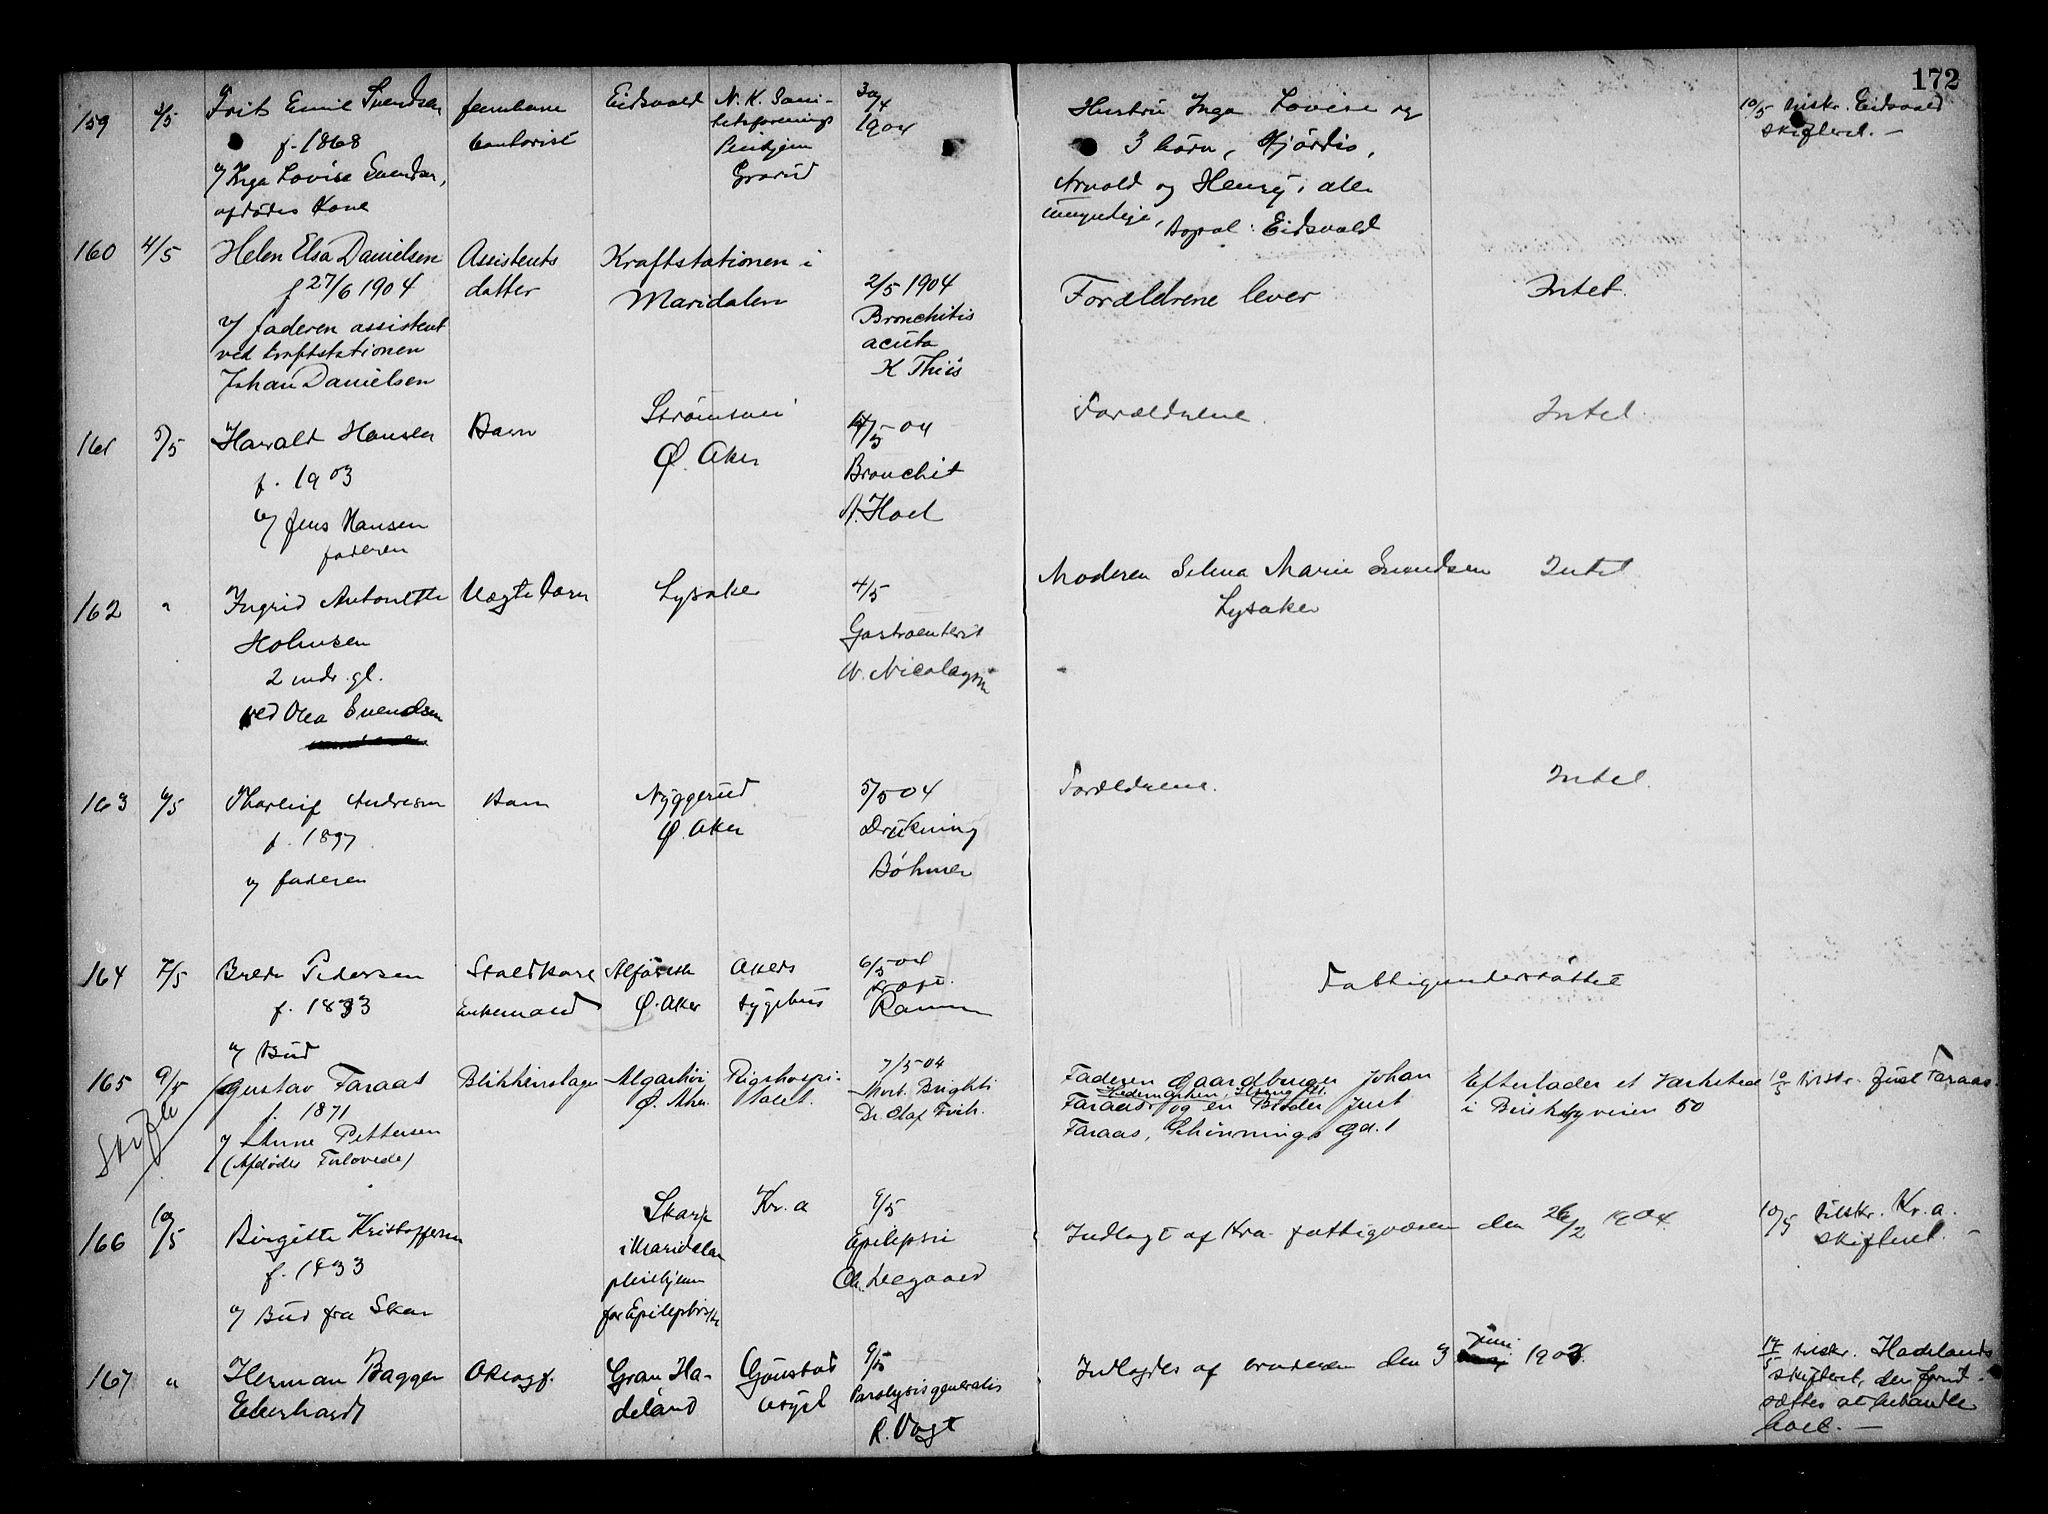 172
159 3/5 Frits Emil Svendsen jernbane Eidsvold N. K. Sani- 30/4
f. 1868 kontorist tetsforenings 1904
v/ Inga Lovise Svendsen, Pleiehjem
afdødes Kone Grorud
Hustru Inga Lovise og
3 børn, Hjördis,
Arnold og Henry, alle
umyndige, Bopæl: Eidsvold
10/5 tilskr. Eidsvold
skifteret. —
160 4/5 Helen Elsa Danielsen Assistents Kraftstationen i
f 27/6 1904 datter Maridalen 2/5 1904
v/ faderen assistent Bronchitis
ved kraftstationen acuta
Johan Danielsen K Thiis
Forældrene lever Intet.
161 5/5 Harald Hansen Barn Strømsvei 4/5 04
f. 1903 Ø. Aker Bronchit
v/ Jens Hansen A. Hoel
faderen
Forældrene. Intet.
162 " Ingrid Antonette Uægte barn Lysaker 4/5
Holmsen Gastroenterit
2 mdr. gl. N. Nicolaysen
ved Olea Svendsen
Moderen Selma Marie Svendsen Intet.
Lysaker
163 6/5 Thorleif Andresen Barn Nyggerud 5/5 04
f. 1897 Ø. Aker Drukning
v/ faderen Böhmer
Forældrene. Intet.
164 7/5 Brede Pedersen Staldkarl Alfaset Akers 6/5 04
f. 1833 Enkemand Ø. Aker sygehus
v/ Bud Ramm
Fattigunderstøttet
165 9/5 Gustav Faraas Blikkenslager Algarhei Rigshospi- 7/5 04
f. 1871 Ø. Aker. talet. Morb. Brighti
v/ Anne Pettersen Dr. Olaf
(Afdødes Forlovede)
Skifte
Faderen Gaardbruger Johan Efterlader et Verksted 10/5 tilskr. Just Faraas.
Hedemarken,
Faraas og en Broder Just i 50
Faraas, Schwennings Gd. 1
166 10/5 Birgitte Kristoffersen Skar Kr.a 9/5
f. 1833 i Maridalen Epilepsi
v/ Bud fra Skar pleiehjem
for Epileptiske
Indlagt af Kra. fattigvæsen den 26/2 1904. 10/5 tilskr. Kr.a.
skifteret. —
167 " Herman Bagger Oberstl. Gran Ha- Gaustad 9/5
Eberhardt deland asyl Paralysis generalis
R. Vogt
juni
Indlagdes af broderen den 3 1903.
tilskr. Hadelands
skifteret, der forud-
sættes at behandle
boet. —